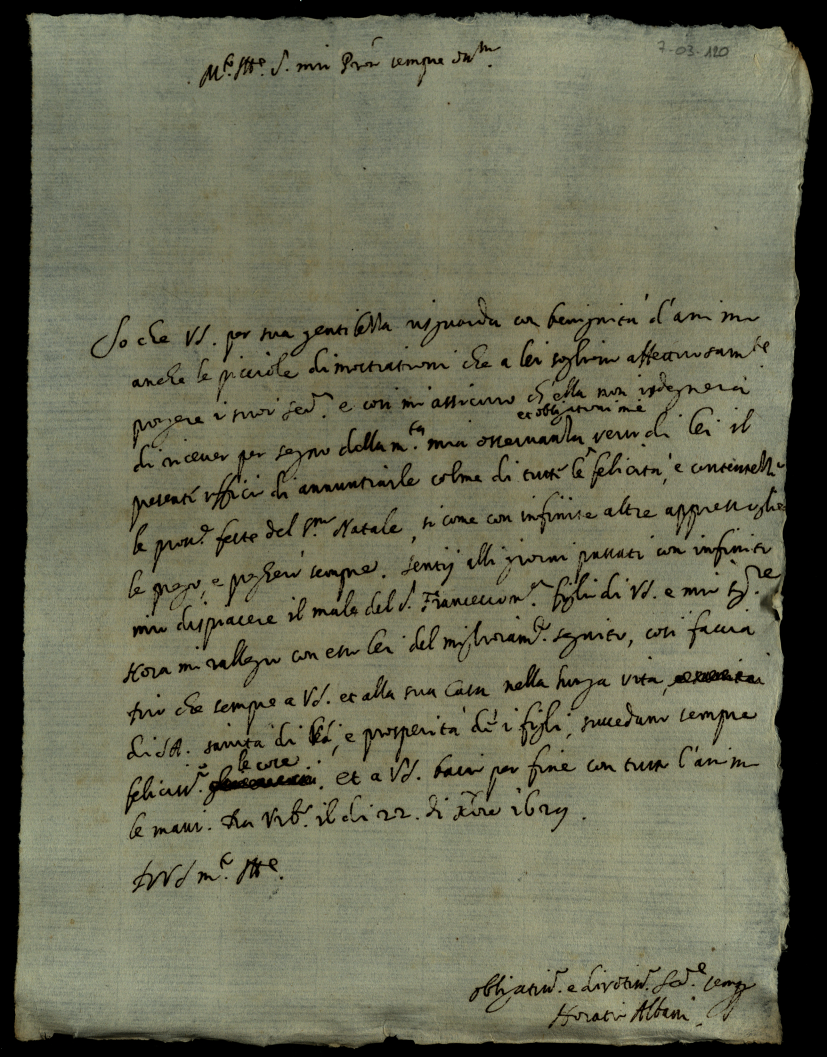 7-03-120
M.to Ill.re S. mio Pron sempre oss.mo
So che VS. per sua gentilezza risguarda con benignità d'animo
anche le picciole dimostrationi che a lei sogliono affettuosam.te
porgere i suoi Ser.ri e così mi assicuro ch'ella non isdegnerà
et obligationi mie
di ricever per segno della m.ta mia osservanza verso di lei il
presente ufficio di annuntiarle colme di tutte le felicità, e contentezze
le pross.e feste del S.mo Natale, sì come con infinite altre appresso gliele
le prego, e pregherò sempre. Sentij alli giorni passati con infinito
mio dispiacere il male del S. Francesco m.o figlio di VS. e mio Sig.re
Hora mi rallegro con esso lei del miglioram.to seguito, così faccia
Dio che sempre a VS. et alla sua Casa nella lunga vita,
di SA. sanità di lei, e prosperità de i figli, succedano sempre
le cose
feliciss.e et a VS. bacio per fine con tutto l'animo
le mani. Da Urb.o il di 22. di Xbre 1629.
Di VS m.to Ill.re
obligatiss.o e divotiss.o Ser.re sempre
Horatio Albani